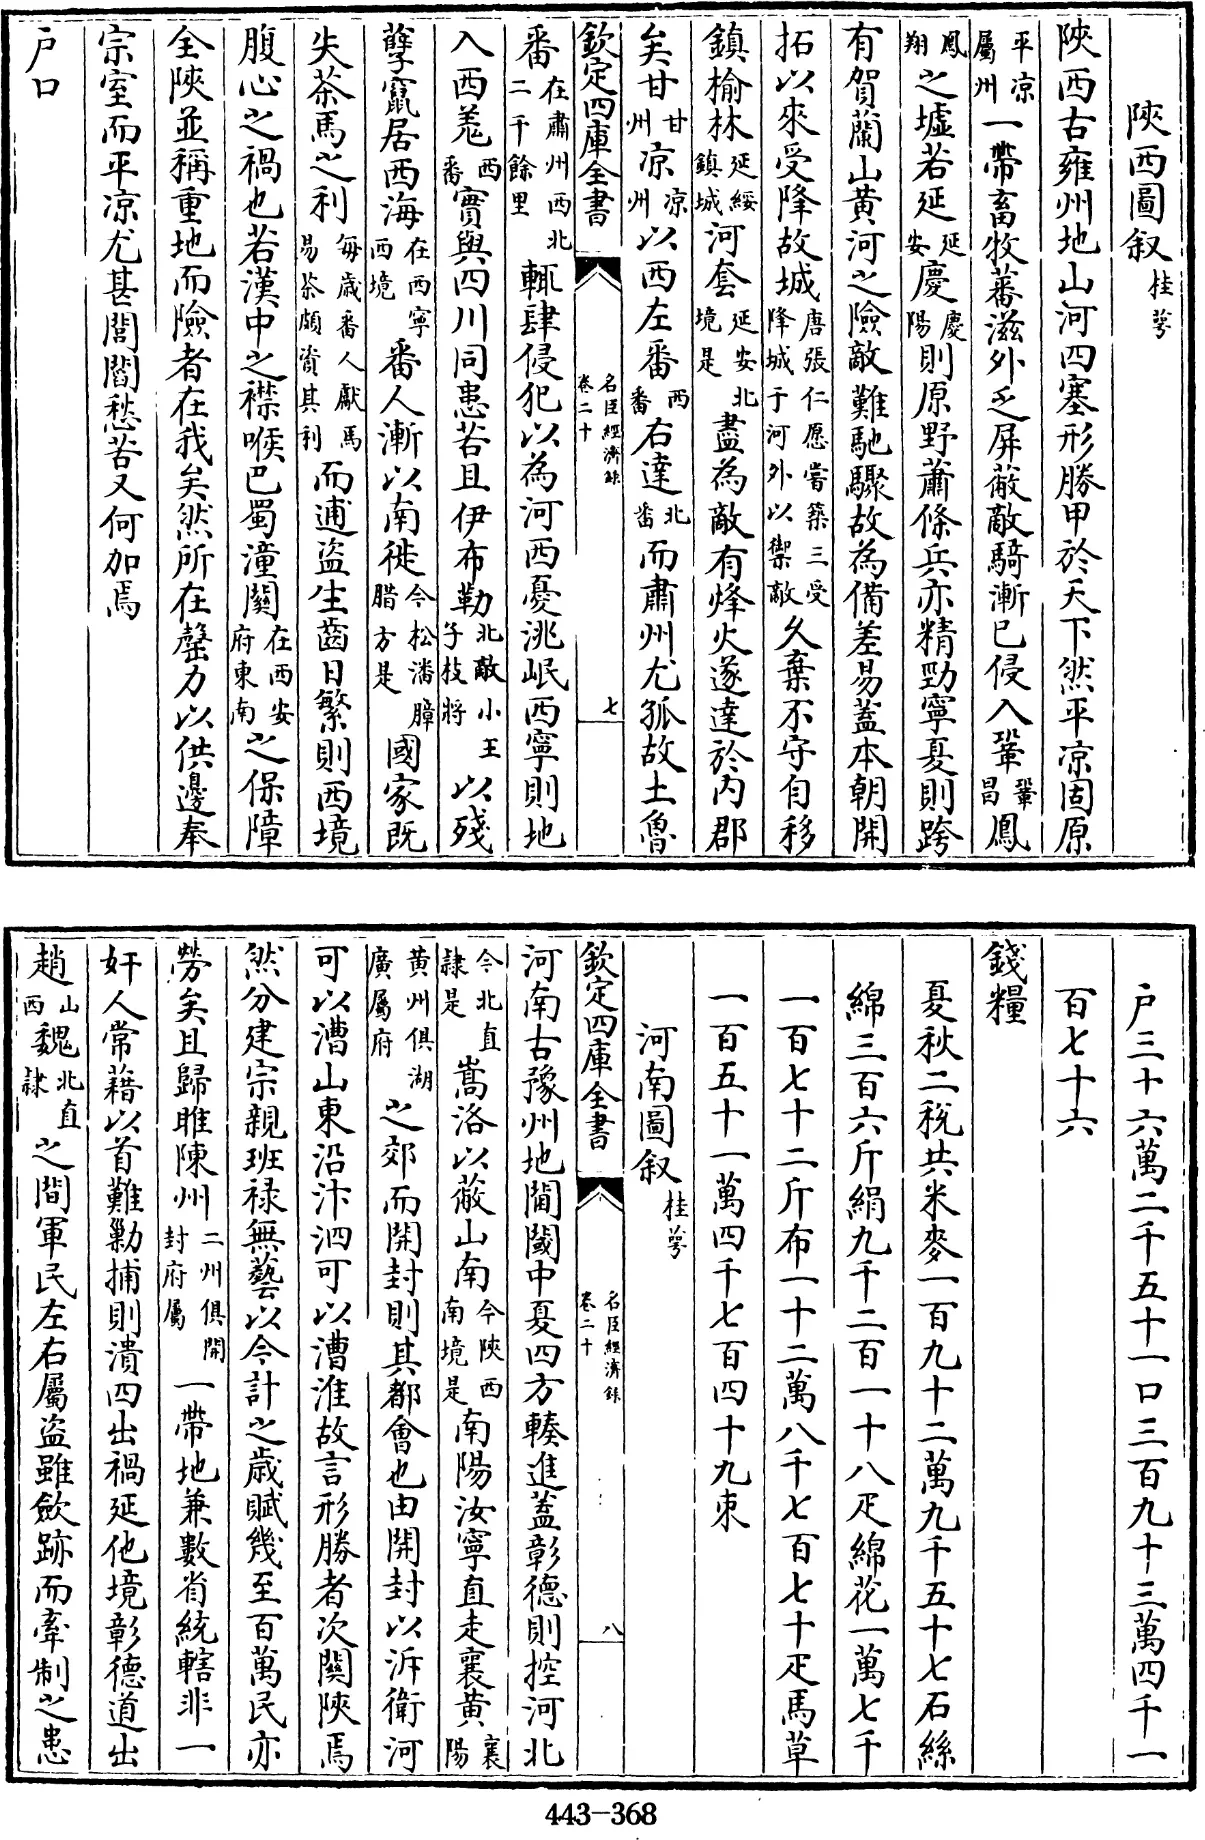 陜西圖叙桂萼
陜西古雍州地山河四塞形勝甲於天下然平凉固原
平凉屬州一帶畜牧蕃滋外乏屏蔽敵騎漸已侵入鞏鞏昌鳳
鳳翔之墟若延延安慶慶陽則原野蕭條兵亦精勁寧夏則跨
有賀蘭山黄河之險敵難馳驟故為備差易葢本朝開
拓以來受降故城唐張仁愿嘗築三受降城于河外以禦敵久棄不守自移
鎮榆林延綏鎮城河套延安北境是盡為敵有烽火遂達於内郡
矣甘甘州凉凉州以西左番西番右達北番而肅州尤孤故土魯
欽定四庫全書
名臣經濟録
卷二十
七
番在肅州西北二千餘里輒肆侵犯以為河西憂洮岷西寧則地
入西羗西番實與四川同患若且伊布勒北敵小王子枝將以殘
孽竄居西海在西寧西境番人漸以南徙今松潘臘方是國家既
失茶馬之利每歲番人獻馬易茶頗資其利而逋盗生齒日繁則西境
腹心之禍也若漢中之襟喉巴蜀潼關在西安府東南之保障
全陜並稱重地而險者在我矣然所在罄力以供邊奉
宗室而平凉尤甚閭閻愁苦又何加焉
户口
户三十六萬二千五十一口三百九十三萬四千一
百七十六
錢糧
夏秋二税共米麥一百九十二萬九千五十七石絲
綿三百六斤絹九千二百一十八疋綿花一萬七千
一百七十二斤布一十二萬八千七百七十疋馬草
一百五十一萬四千七百四十九束
河南圖叙桂萼
欽定四庫全書
名臣經濟録
卷二十
八
河南古豫州地閫閾中夏四方輳進葢彰德則控河北
今北直隷是嵩洛以蔽山南今陜西南境是南陽汝寧直走襄黄襄陽
黄州俱湖廣屬府之郊而開封則其都會也由開封以泝衛河
可以漕山東沿汴泗可以漕淮故言形勝者次關陜焉
然分建宗親班禄無藝以今計之歳賦幾至百萬民亦
勞矣且歸睢陳州二州俱開封府屬一帶地兼數省統轄非一
奸人常藉以首難勦捕則潰四出禍延他境彰德道出
趙山西魏北直隷之間軍民左右屬盗雖歛跡而牽制之患
443-368